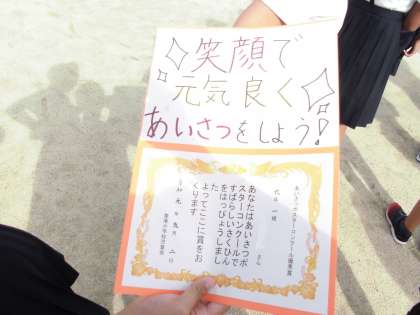 笑顔で
元気良く
あいさつをしよう!
あいさつポスターコンクール優秀賞
さん
あなたはあいさつポ
スターコンクールで
すばらしいさくひん
をはっぴょうしまし
た
よってここに賞をお
くります
令和元年九月二日